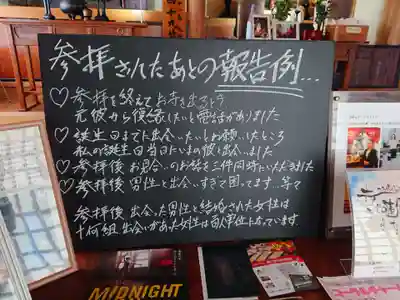 参拝されたあとの報告例…
♡ 参拝を終えてお寺を出ようら
元彼から復縁したいと電話がありました
♡ 誕生日までに出会いたいとお願いしたところ
私の誕生日当日にいまの彼と出会いました
♡ 参拝後 お見合いのお話を三件同時にいただきました
♡ 参拝後 男性と出会いすぎて困ってます…等々
参拝後 出会った男性と結婚された女性は
十何組 出会いがあった女性は百人単位になっています
MIDNIGHT